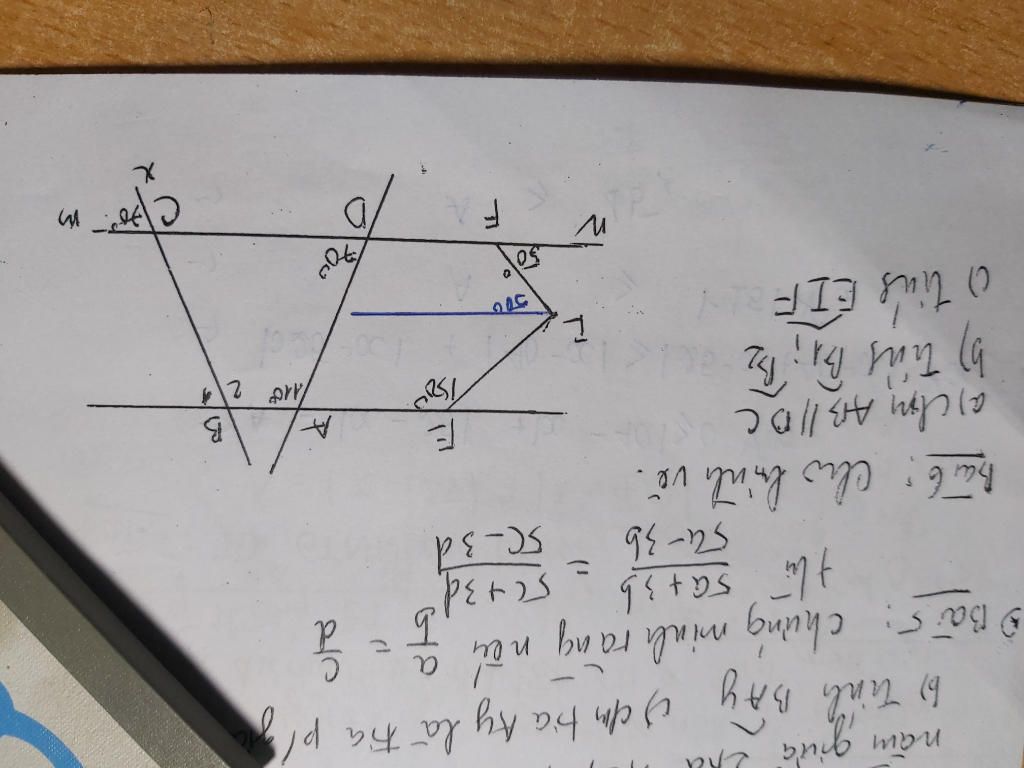 nằm giữa
b) Tính BAy c) cm tia Ay là tia p/
Bài 5: chứng minh rằng nếu a/b = c/d
thì 5a+3b/5a-3b = 5c+3d/5c-3d
Bài 6: Cho hình vẽ.
a) Cm AB//DC
b) Tính B1; B2
c) tính EIF
E A B
130° 110° 2 1
I 50°
50° 70° 70°
n F D C m
x